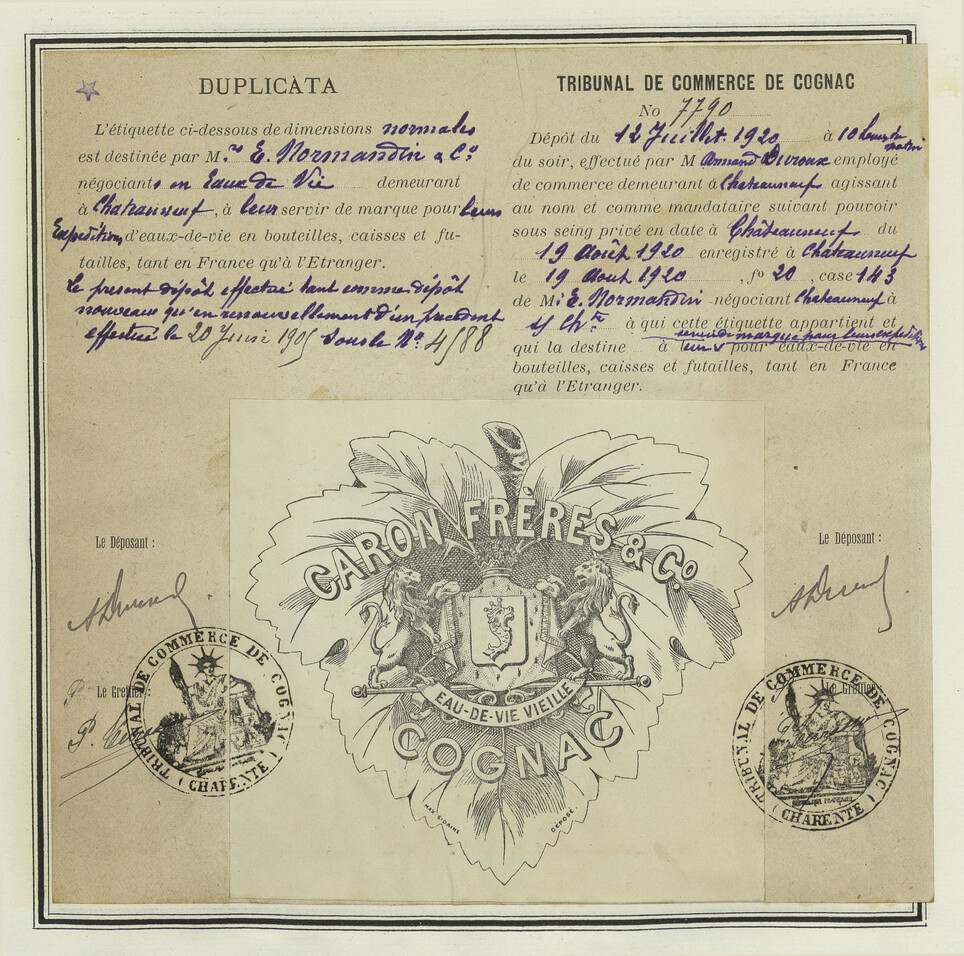 DUPLICATA
L'étiquette ci-dessous de dimensions normales
est destinée par M.rs E. Normandin & Co.
négociants en Eaux de Vie demeurant
à Chateauneuf, à leur servir de marque pour leurs
Expeditions d'eaux-de-vie en bouteilles, caisses et fu-
tailles, tant en France qu'à l'Etranger.
Le present dépôt effectué tant comme dépôt
nouveau qu'en renouvellement d'un precedent
effectué le 20 Juin 1905 sous le No. 4588
TRIBUNAL DE COMMERCE DE COGNAC
No 7790
Dépôt du 12 Juillet 1920 à 10 heures du matin
du soir, effectué par M Armand Duroux employé
de commerce demeurant à Chateauneuf agissant
au nom et comme mandataire suivant pouvoir
sous seing privé en date à Châteauneuf du
19 Août 1920 enregistré à Chateauneuf
le 19 Aout 1920, fo 20, case 143
de M. E. Normandin négociant Chateauneuf à
s/ Chte à qui cette étiquette appartient et
servir de marque pour leurs expéditions
qui la destine à leurs pour eaux-de-vie en
bouteilles, caisses et futailles, tant en France
qu'à l'Etranger.
CARON FRÈRES & Co
EAU-DE-VIE VIEILLE
COGNAC
DÉPOSÉ
Le Déposant :
Le Greffier :
TRIBUNAL DE COMMERCE DE COGNAC
( CHARENTE )
Le Déposant :
Le Greffier :
TRIBUNAL DE COMMERCE DE COGNAC
( CHARENTE )